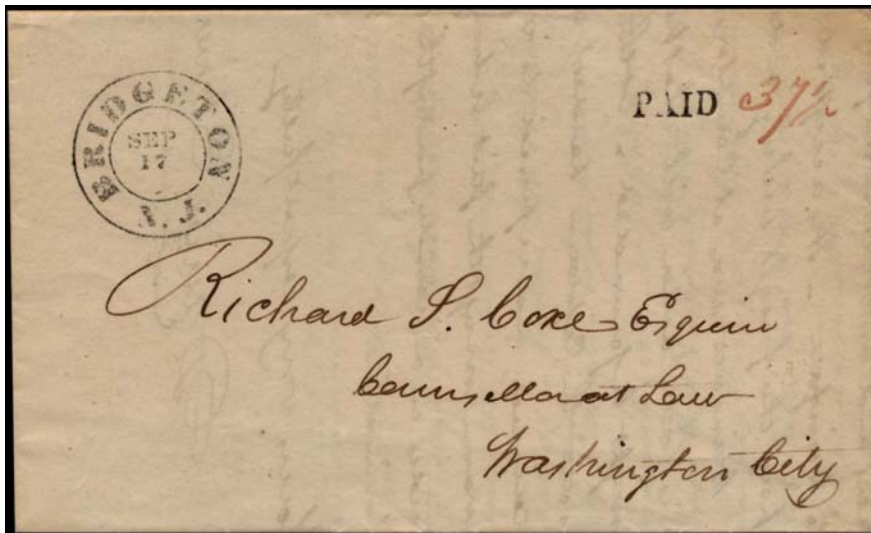 BRIDGETON
N.J.
SEP
17
PAID 37½
Richard S. Coxe Esquire
Counsellor at Law
Washington City